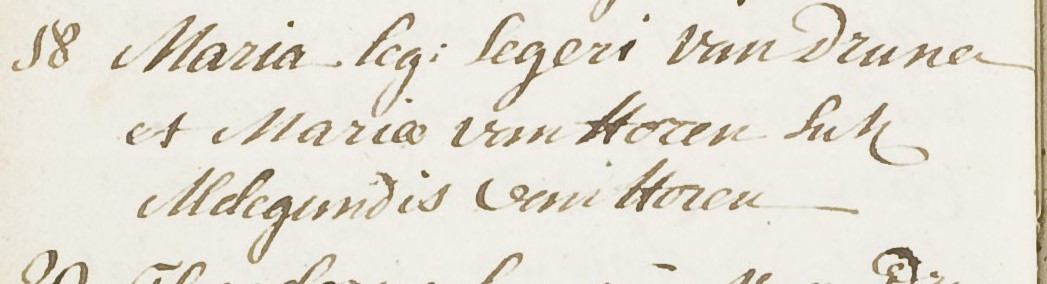 18 Maria leg: Segeri van Drunen
et Mariæ van Horen Sus:
Aldegundis van Horen
20 Theodorus